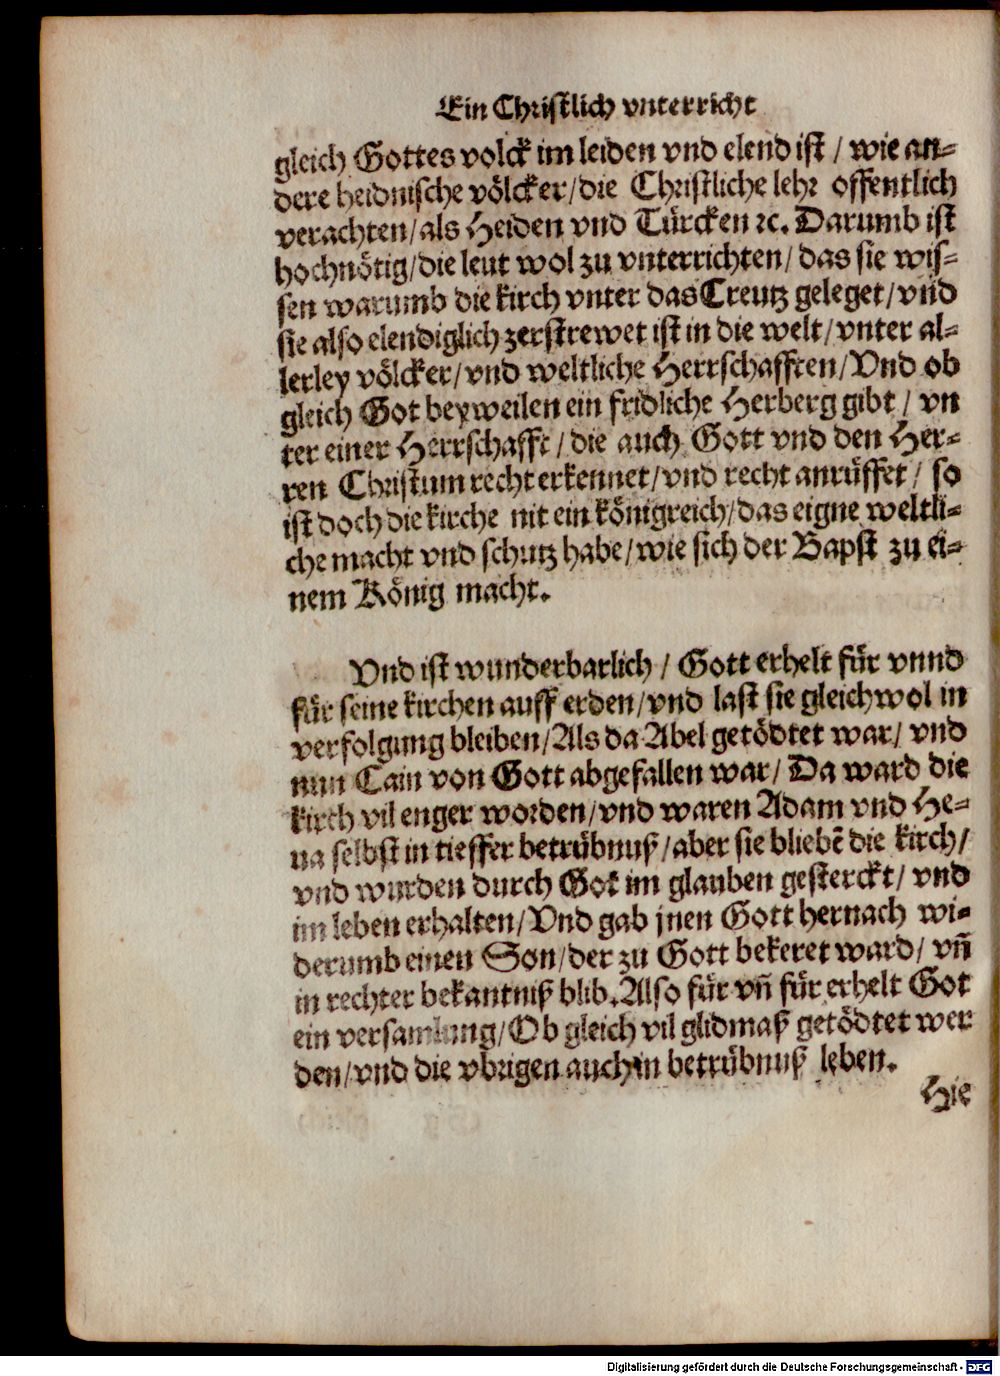 Ein Christlich vnterricht
gleich Gottes volck im leiden vnd elend ist / wie an=
dere heidnische völcker/die Christliche lehr offentlich
verachten/als Heiden vnd Türcken ꝛc. Darumb ist
hochnötig/die leut wol zu vnterrichten/das sie wis=
sen warumb die kirch vnter das Creutz geleget/vnd
sie also elendiglich zerstrewet ist in die welt/vnter al=
lerley völcker/vnd weltliche Herrschafften/Vnd ob
gleich Got beyweilen ein fridliche Herberg gibt / vn
ter einer Herrschafft/die auch Gott vnd den Her=
ren Christum recht erkennet/vnd recht anrüffet/ so
ist doch die kirche nit ein königreich/das eigne weltli=
che macht vnd schutz habe/wie sich der Bapst zu ei=
nem König macht.
Vnd ist wunderbarlich / Gott erhelt für vnnd
für seine kirchen auff erden/vnd last sie gleichwol in
verfolgung bleiben/Als da Abel getödtet war/ vnd
nun Cain von Gott abgefallen war/ Da ward die
kirch vil enger worden/vnd waren Adam vnd He=
ua selbst in tieffer betrübnuß/aber sie bliebẽ die kirch/
vnd wurden durch Got im glauben gesterckt/ vnd
im leben erhalten/Vnd gab jnen Gott hernach wi=
derumb einen Son/der zu Gott bekeret ward/ vñ
in rechter bekantniß blib.Also für vñ für erhelt Got
ein versamlung/Ob gleich vil glidmaß getödtet wer
den/vnd die vbrigen auch in betrübnuß leben.
Hie
Digitalisierung gefördert durch die Deutsche Forschungsgemeinschaft - DFG